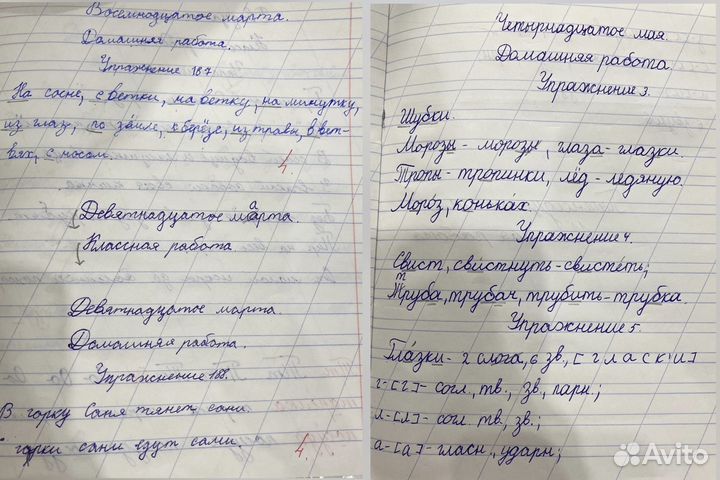 Восемнодцатое марта.
Домашняя работа.
Упражнение 187
На сосне, с ветки, на ветку, на минутку,
из глаз, по земле, к берёзе, из травы, в вет-
вях, с носом.
4.
Девятнадцатое марта.
Классная работа.
Девятнадцатое марта.
Домашняя работа.
Упражнение 188.
В горку Саня тянет сани.
С горки сани едут сами.
4.
Четырнадцатое мая
Домашняя работа
Упражнение 3.
Шубки.
Морозы - морозы, глаза - глазки.
Тропы - тропинки, лёд - ледяную.
Мороз, коньках.
Упражнение 4.
Свист, свистнуть - свистеть;
Труба, трубач, трубить - трубка.
Упражнение 5.
Глазки - 2 слога, 6 зв, [гласк'и]
г-[г]- согл., тв., зв., парн.;
л-[л]- согл. тв., зв.;
а-[а]- гласн., ударн;
Avito